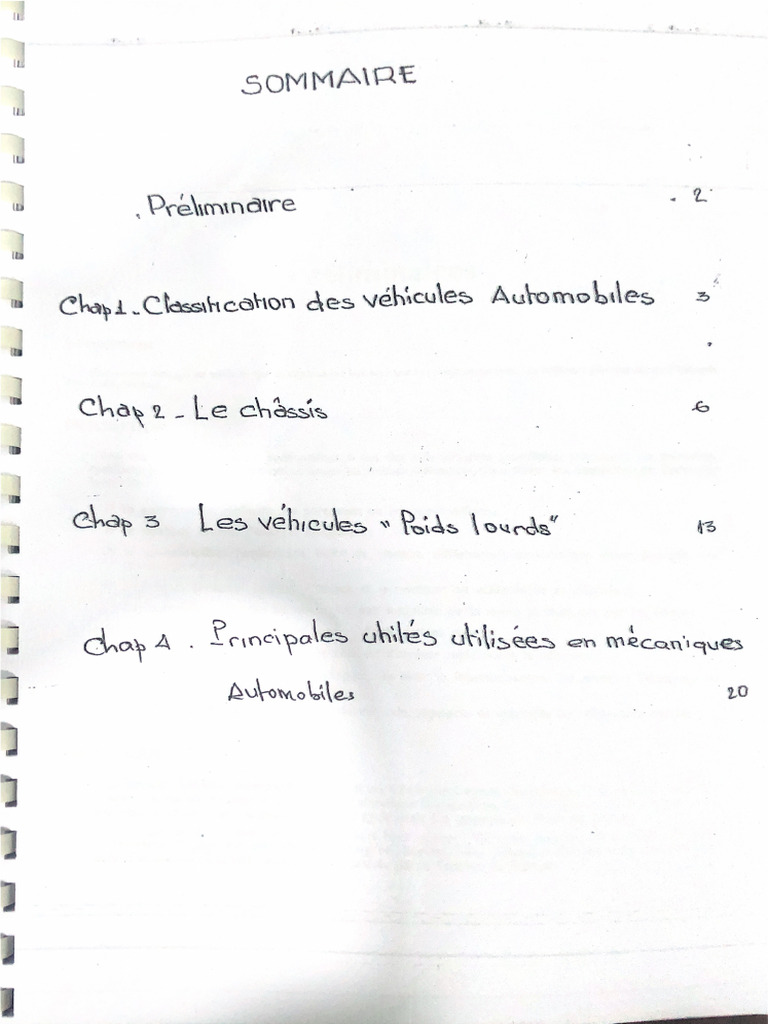 SOMMAIRE
. Préliminaire . 2
Chap 1 - Classification des véhicules Automobiles 3
Chap 2 - Le châssis 6
Chap 3 Les véhicules "Poids lourds" 13
Chap 4 . Principales unités utilisées en mécaniques
Automobiles 20